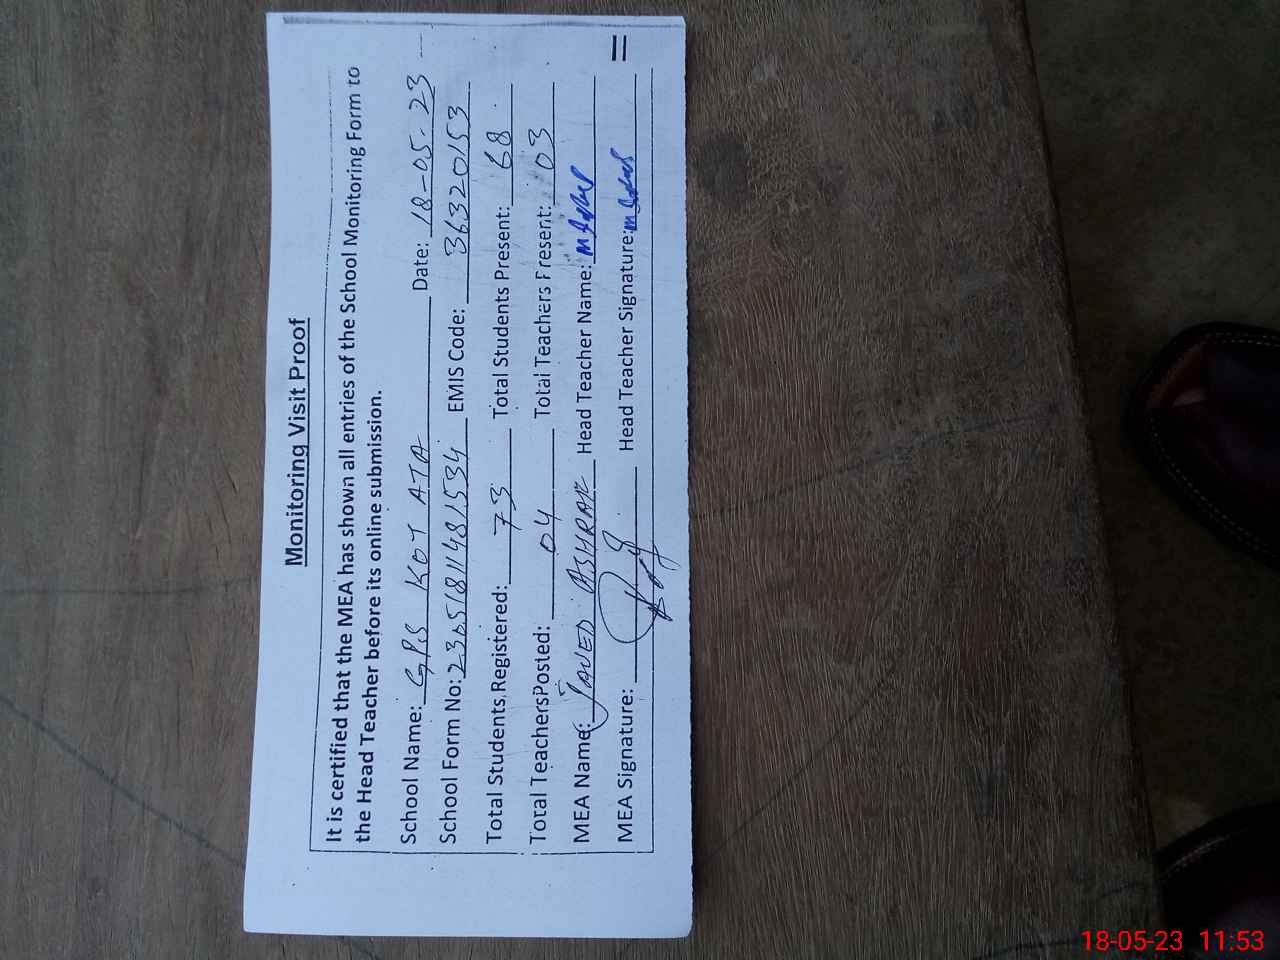 Monitoring Visit Proof
It is certified that the MEA has shown all entries of the School Monitoring Form to
the Head Teacher before its online submission.
School Name: GPS KOT ATA Date: 18-05-23
School Form No: 23051811481534 EMIS Code: 36320153
Total Students Registered: 73 Total Students Present: 68
Total TeachersPosted: 04 Total Teachers Present: 03
MEA Name: JAVED ASHRAF Head Teacher Name:
MEA Signature: Head Teacher Signature:
18-05-23 11:53